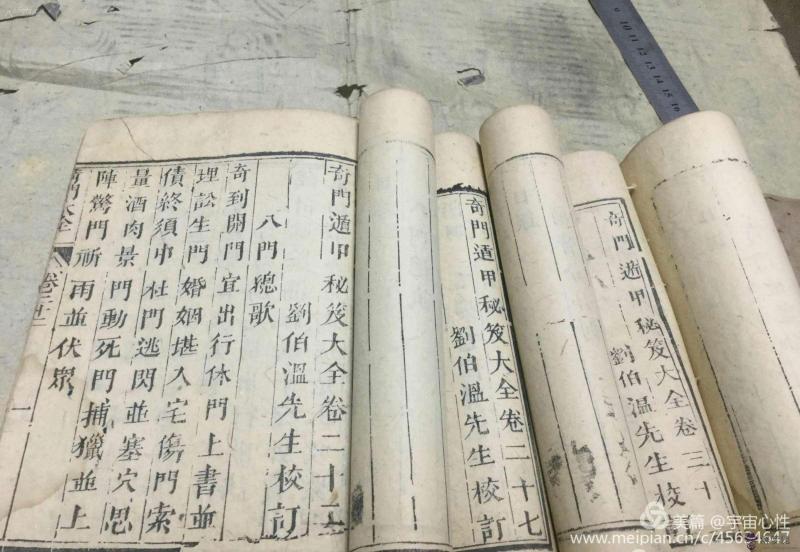 奇門遁甲秘笈大全卷二十二
劉伯溫先生校訂
八門總歌
奇到開門宜出行休門上書並
理訟生門婚姻堪入宅傷門索
債終須中杜門逃閃並塞穴思
量酒肉景門動死門捕獵並上
陣驚門祈雨並伏眾
門大全
一
奇門遁甲秘笈大全卷二十七
劉伯溫先生校訂
奇門遁甲秘笈大全卷三十
劉伯溫先生校
10 11 12 13 14 15 16
美篇 @宇宙心性
www.meipian.cn/c/45634647